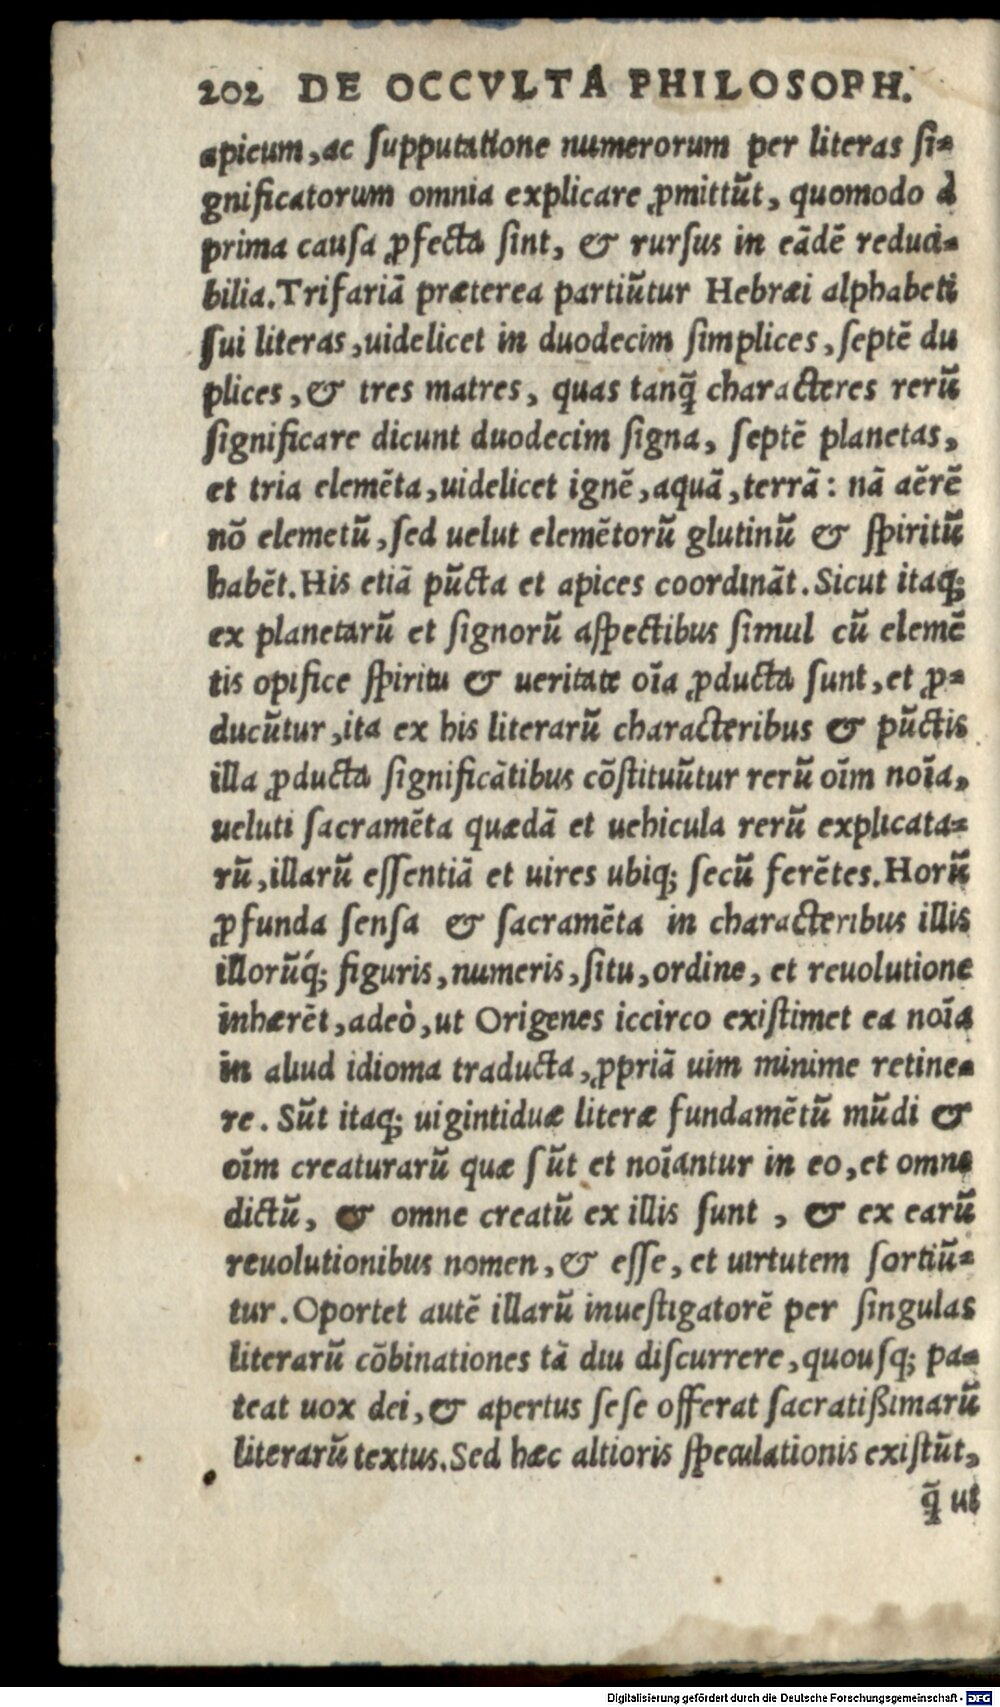 202 DE OCCVLTA PHILOSOPH.
apicum, ac ſupputatione numerorum per literas ſi=
gnificatorum omnia explicare ꝓmittūt, quomodo à
prima cauſa ꝓfecta ſint, & rurſus in eādē reduci=
bilia. Trifariā præterea partiūtur Hebræi alphabeti
ſui literas, uidelicet in duodecim ſimplices, ſeptē du
plices, & tres matres, quas tanq̄ characteres rerū
ſignificare dicunt duodecim ſigna, ſeptē planetas,
et tria elemēta, uidelicet ignē, aquā, terrā: nā aërē
nō elemetū, ſed uelut elemētorū glutinū & ſpiritū
habēt. His etiā pūcta et apices coordināt. Sicut itaq;
ex planetarū et ſignorū aſpectibus ſimul cū elemē
tis opifice ſpiritu & ueritate oīa ꝓducta ſunt, et ꝓ=
ducūtur, ita ex his literarū characteribus & pūctis
illa ꝓducta ſignificātibus cōſtituūtur rerū oīm noīa,
ueluti ſacramēta quædā et uehicula rerū explicata=
rū, illarū eſſentiā et uires ubiq; ſecū ferētes. Horū
ꝓfunda ſenſa & ſacramēta in characteribus illis
illorūq́; figuris, numeris, ſitu, ordine, et reuolutione
inhærēt, adeò, ut Origenes iccirco exiſtimet ea noīa
in aliud idioma traducta, ꝓpriā uim minime retine=
re. Sūt itaq; uigintiduæ literæ fundamētū mūdi &
oīm creaturarū quæ ſūt et noīantur in eo, et omne
dictū, & omne creatū ex illis ſunt, & ex earū
reuolutionibus nomen, & eſſe, et uirtutem ſortiū=
tur. Oportet autē illarū inueſtigatorē per ſingulas
literarū cōbinationes tā diu diſcurrere, quouſq; pa=
teat uox dei, & apertus ſeſe offerat ſacratißimarū
literarū textus. Sed hæc altioris ſpeculationis exiſtūt,
q̄ ut
Digitalisierung gefördert durch die Deutsche Forschungsgemeinschaft - DFG